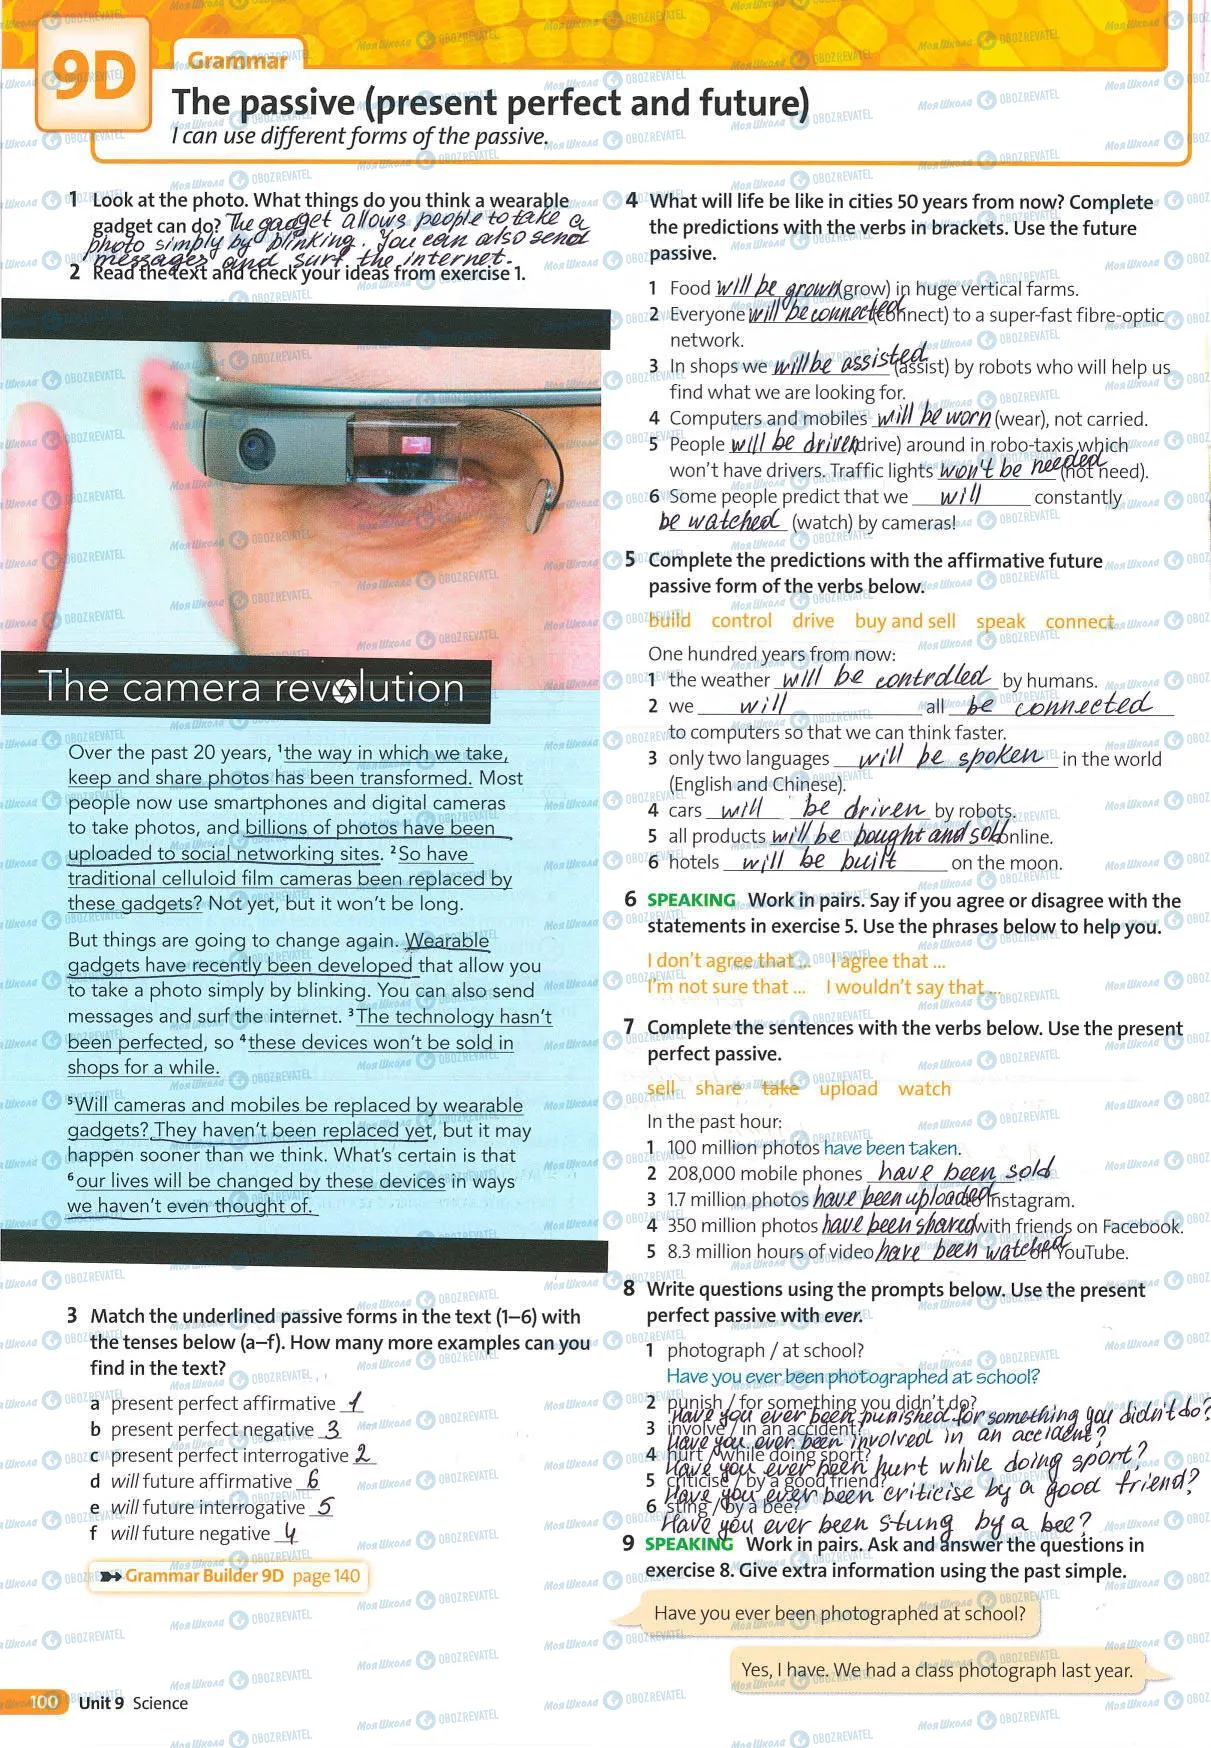 9D
Grammar
The passive (present perfect and future)
I can use different forms of the passive.
1 Look at the photo. What things do you think a wearable
gadget can do? The gadget allows people to take a
photo simply by blinking. You can also send
messages and surf the internet.
2 Read the text and check your ideas from exercise 1.
The camera revolution
Over the past 20 years, ¹the way in which we take,
keep and share photos has been transformed. Most
people now use smartphones and digital cameras
to take photos, and billions of photos have been
uploaded to social networking sites. ²So have
traditional celluloid film cameras been replaced by
these gadgets? Not yet, but it won't be long.
But things are going to change again. Wearable
gadgets have recently been developed that allow you
to take a photo simply by blinking. You can also send
messages and surf the internet. ³The technology hasn't
been perfected, so ⁴these devices won't be sold in
shops for a while.
⁵Will cameras and mobiles be replaced by wearable
gadgets? They haven't been replaced yet, but it may
happen sooner than we think. What's certain is that
⁶our lives will be changed by these devices in ways
we haven't even thought of.
3 Match the underlined passive forms in the text (1–6) with
the tenses below (a–f). How many more examples can you
find in the text?
a present perfect affirmative 1
b present perfect negative 3
c present perfect interrogative 2
d will future affirmative 6
e will future interrogative 5
f will future negative 4
Grammar Builder 9D page 140
4 What will life be like in cities 50 years from now? Complete
the predictions with the verbs in brackets. Use the future
passive.
1 Food will be grown (grow) in huge vertical farms.
2 Everyone will be connected (connect) to a super-fast fibre-optic
network.
3 In shops we will be assisted (assist) by robots who will help us
find what we are looking for.
4 Computers and mobiles will be worn (wear), not carried.
5 People will be driven (drive) around in robo-taxis which
won't have drivers. Traffic lights won't be needed (not need).
6 Some people predict that we will constantly
be watched (watch) by cameras!
5 Complete the predictions with the affirmative future
passive form of the verbs below.
build control drive buy and sell speak connect
One hundred years from now:
1 the weather will be controlled by humans.
2 we will all be connected
to computers so that we can think faster.
3 only two languages will be spoken in the world
(English and Chinese).
4 cars will be driven by robots.
5 all products will be bought and sold online.
6 hotels will be built on the moon.
6 SPEAKING Work in pairs. Say if you agree or disagree with the
statements in exercise 5. Use the phrases below to help you.
I don't agree that ... I agree that ...
I'm not sure that ... I wouldn't say that ...
7 Complete the sentences with the verbs below. Use the present
perfect passive.
sell share take upload watch
In the past hour:
1 100 million photos have been taken.
2 208,000 mobile phones have been sold.
3 1.7 million photos have been uploaded to Instagram.
4 350 million photos have been shared with friends on Facebook.
5 8.3 million hours of video have been watched on YouTube.
8 Write questions using the prompts below. Use the present
perfect passive with ever.
1 photograph / at school?
Have you ever been photographed at school?
2 punish / for something you didn't do?
Have you ever been punished for something you didn't do?
3 involve / in an accident?
Have you ever been involved in an accident?
4 hurt / while doing sport?
Have you ever been hurt while doing sport?
5 criticise / by a good friend?
Have you ever been criticise by a good friend?
6 sting / by a bee?
Have you ever been stung by a bee?
9 SPEAKING Work in pairs. Ask and answer the questions in
exercise 8. Give extra information using the past simple.
Have you ever been photographed at school?
Yes, I have. We had a class photograph last year.
100 Unit 9 Science
Моя Школа OBOZREVATEL